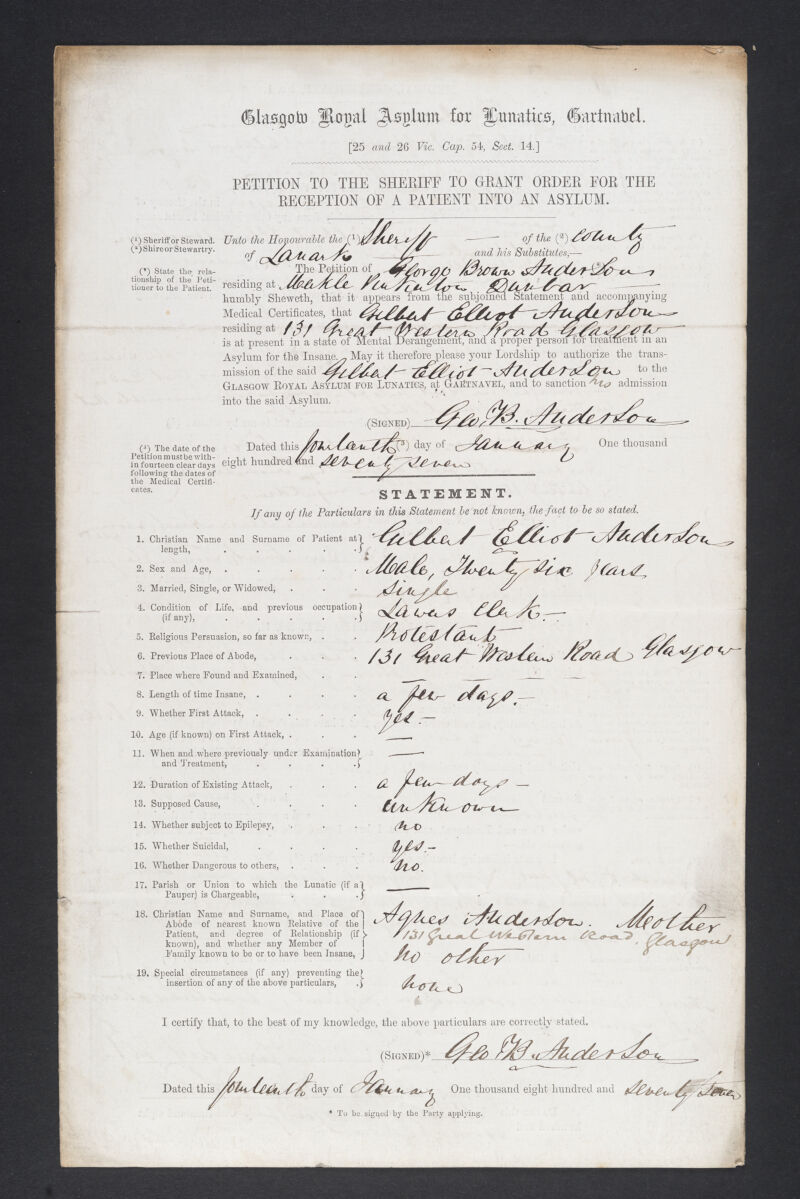 Glasgow Royal Asylum for Lunatics, Gartnavel.
[25 and 26 Vic. Cap. 54, Sect. 14.]
PETITION TO THE SHERIFF TO GRANT ORDER FOR THE
RECEPTION OF A PATIENT INTO AN ASYLUM.
(¹) Sheriff or Steward.
(²) Shire or Stewartry.
Unto the Honourable the (¹) Sheriff — of the (²) County
of Lanark — and his Substitutes,—
(*) State the rela-
tionship of the Peti-
tioner to the Patient.
The Petition of George Brown Anderson
residing at Dunbar
humbly Sheweth, that it appears from the subjoined Statement and accompanying
Medical Certificates, that Gilbert Elliot Anderson
residing at 131 Great Western Road Glasgow
is at present in a state of Mental Derangement, and a proper person for treatment in an
Asylum for the Insane. May it therefore please your Lordship to authorize the trans-
mission of the said Gilbert Elliot Anderson to the
GLASGOW ROYAL ASYLUM FOR LUNATICS, at GARTNAVEL, and to sanction his admission
into the said Asylum.
(SIGNED) Geo. B. Anderson
(³) The date of the
Petition must be with-
in fourteen clear days
following the dates of
the Medical Certifi-
cates.
Dated this fourteenth (³) day of January One thousand
eight hundred and seventy seven
STATEMENT.
If any of the Particulars in this Statement be not known, the fact to be so stated.
1. Christian Name and Surname of Patient at
length, Gilbert Elliot Anderson
2. Sex and Age, Male, Twenty six years
3. Married, Single, or Widowed, Single
4. Condition of Life, and previous occupation
(if any), Lawers Clerk —
5. Religious Persuasion, so far as known, Protestant
6. Previous Place of Abode, 131 Great Western Road Glasgow
7. Place where Found and Examined, — — —
8. Length of time Insane, a few days. —
9. Whether First Attack, yes. —
10. Age (if known) on First Attack, —
11. When and where previously under Examination
and Treatment, —
12. Duration of Existing Attack, a few days —
13. Supposed Cause, unknown
14. Whether subject to Epilepsy, no
15. Whether Suicidal, yes. —
16. Whether Dangerous to others, no.
17. Parish or Union to which the Lunatic (if a
Pauper) is Chargeable, —
18. Christian Name and Surname, and Place of
Abode of nearest known Relative of the
Patient, and degree of Relationship (if
known), and whether any Member of
Family known to be or to have been Insane,
Agnes Anderson. Mother
131 Great Western Road. Glasgow
no other
19. Special circumstances (if any) preventing the
insertion of any of the above particulars, none
I certify that, to the best of my knowledge, the above particulars are correctly stated.
(SIGNED)* Geo. B. Anderson
Dated this fourteenth day of January One thousand eight hundred and seventy seven
* To be signed by the Party applying.